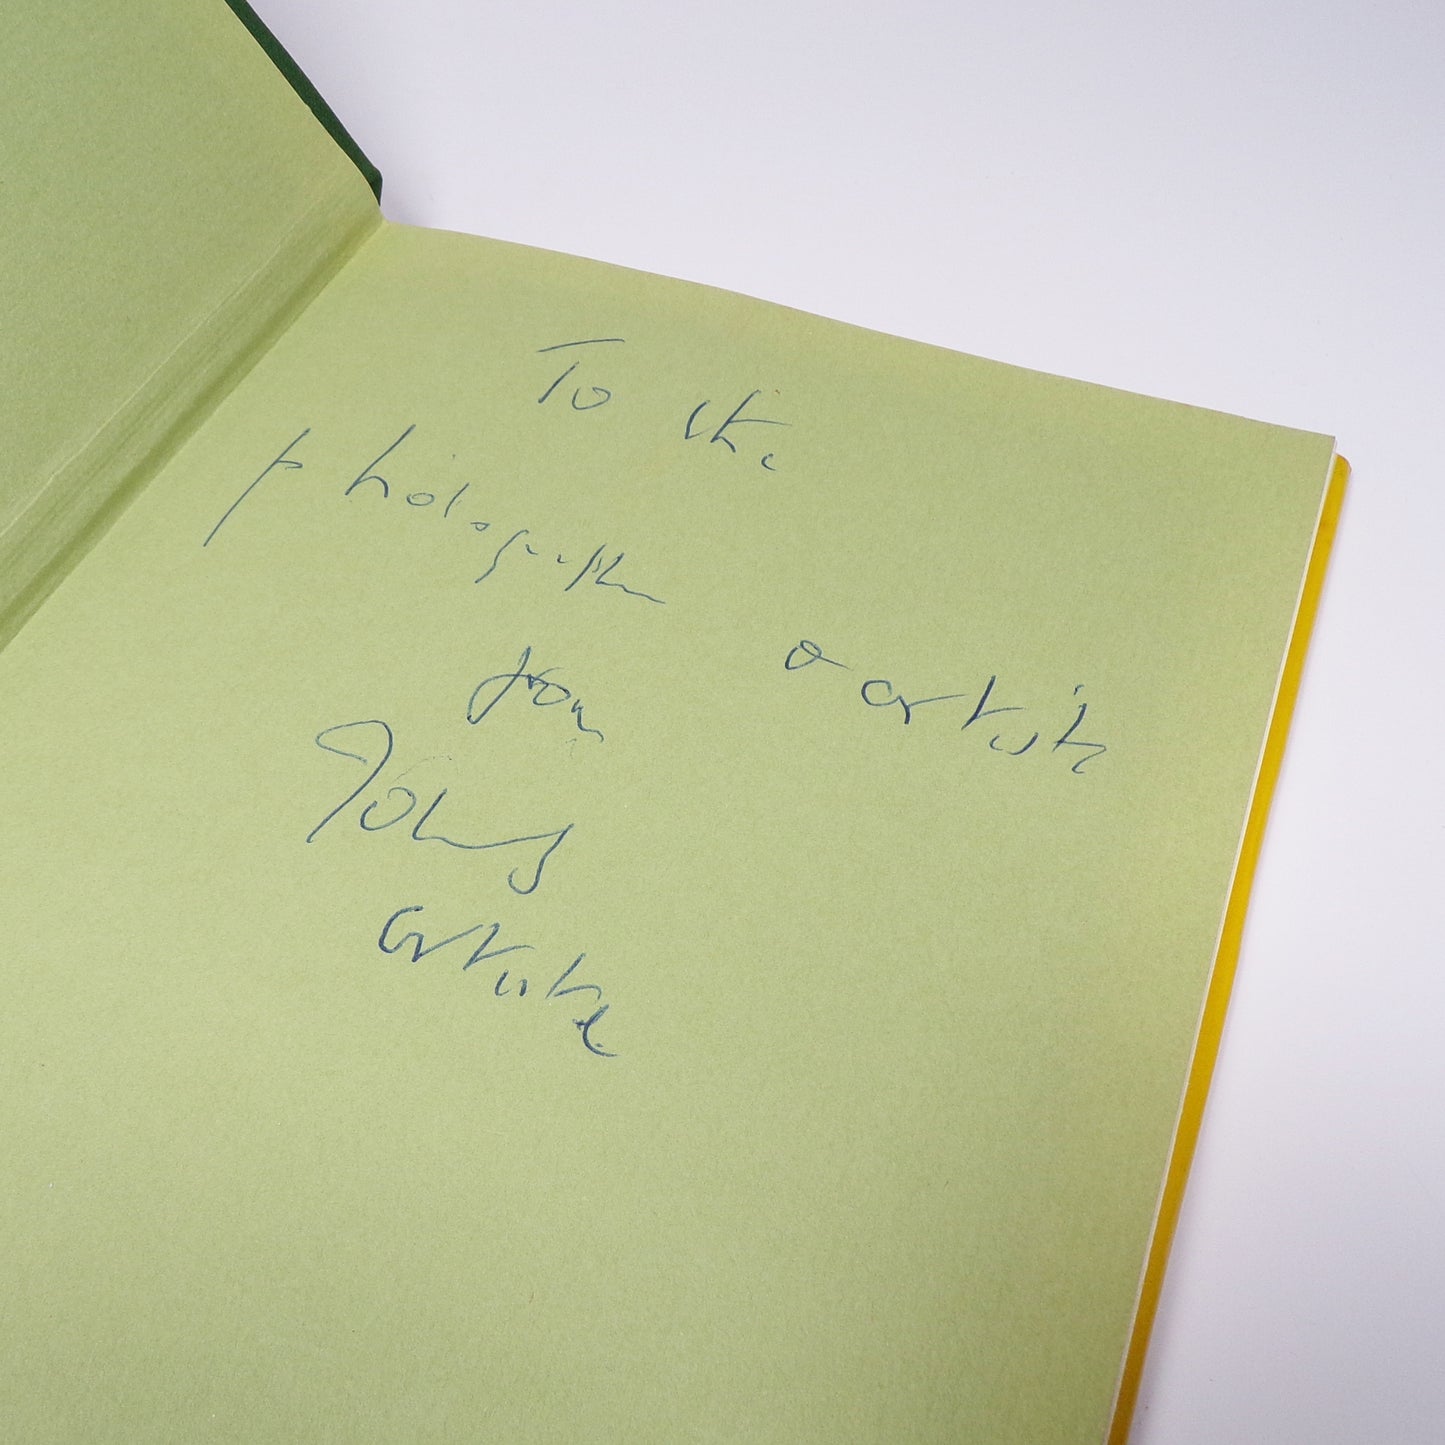 To the
photographer
& artist
from
John